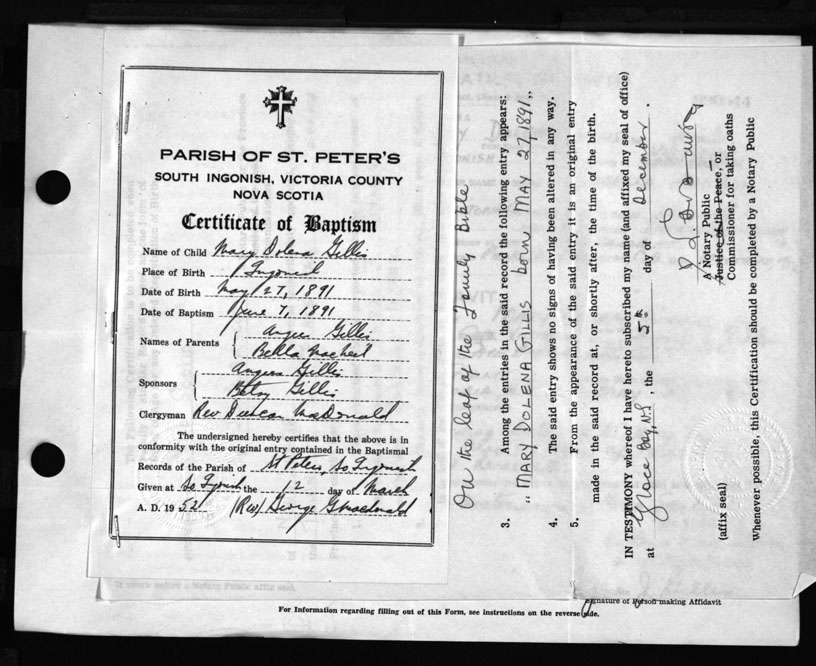 PARISH OF ST. PETER'S
SOUTH INGONISH, VICTORIA COUNTY
NOVA SCOTIA
Certificate of Baptism
Name of Child Mary Dolena Gillis
Place of Birth Ingonish
Date of Birth May 27, 1891
Date of Baptism June 7, 1891
Names of Parents Angus Gillis
Bella MacNeil
Sponsors Angus Gillis
Betsy Gillis
Clergyman Rev Duncan MacDonald
The undersigned hereby certifies that the above is in
conformity with the original entry contained in the Baptismal
Records of the Parish of St Peters, So Ingonish
Given at So Ingonish the 12 day of March
A. D. 1952 (Rev) George
On the leaf of the Family Bible
3. Among the entries in the said record the following entry appears:
"MARY DOLENA GILLIS born MAY 27, 1891"
4. The said entry shows no signs of having been altered in any way.
5. From the appearance of the said entry it is an original entry
made in the said record at, or shortly after, the time of the birth.
IN TESTIMONY whereof I have hereto subscribed my name (and affixed my seal of office)
at Glace Bay, N.S, the 5th day of December.
A Notary Public
Justice of the Peace, or
Commissioner for taking oaths
(affix seal)
Whenever possible, this Certification should be completed by a Notary Public
Signature of Person making Affidavit
For Information regarding filling out of this Form, see instructions on the reverse side.